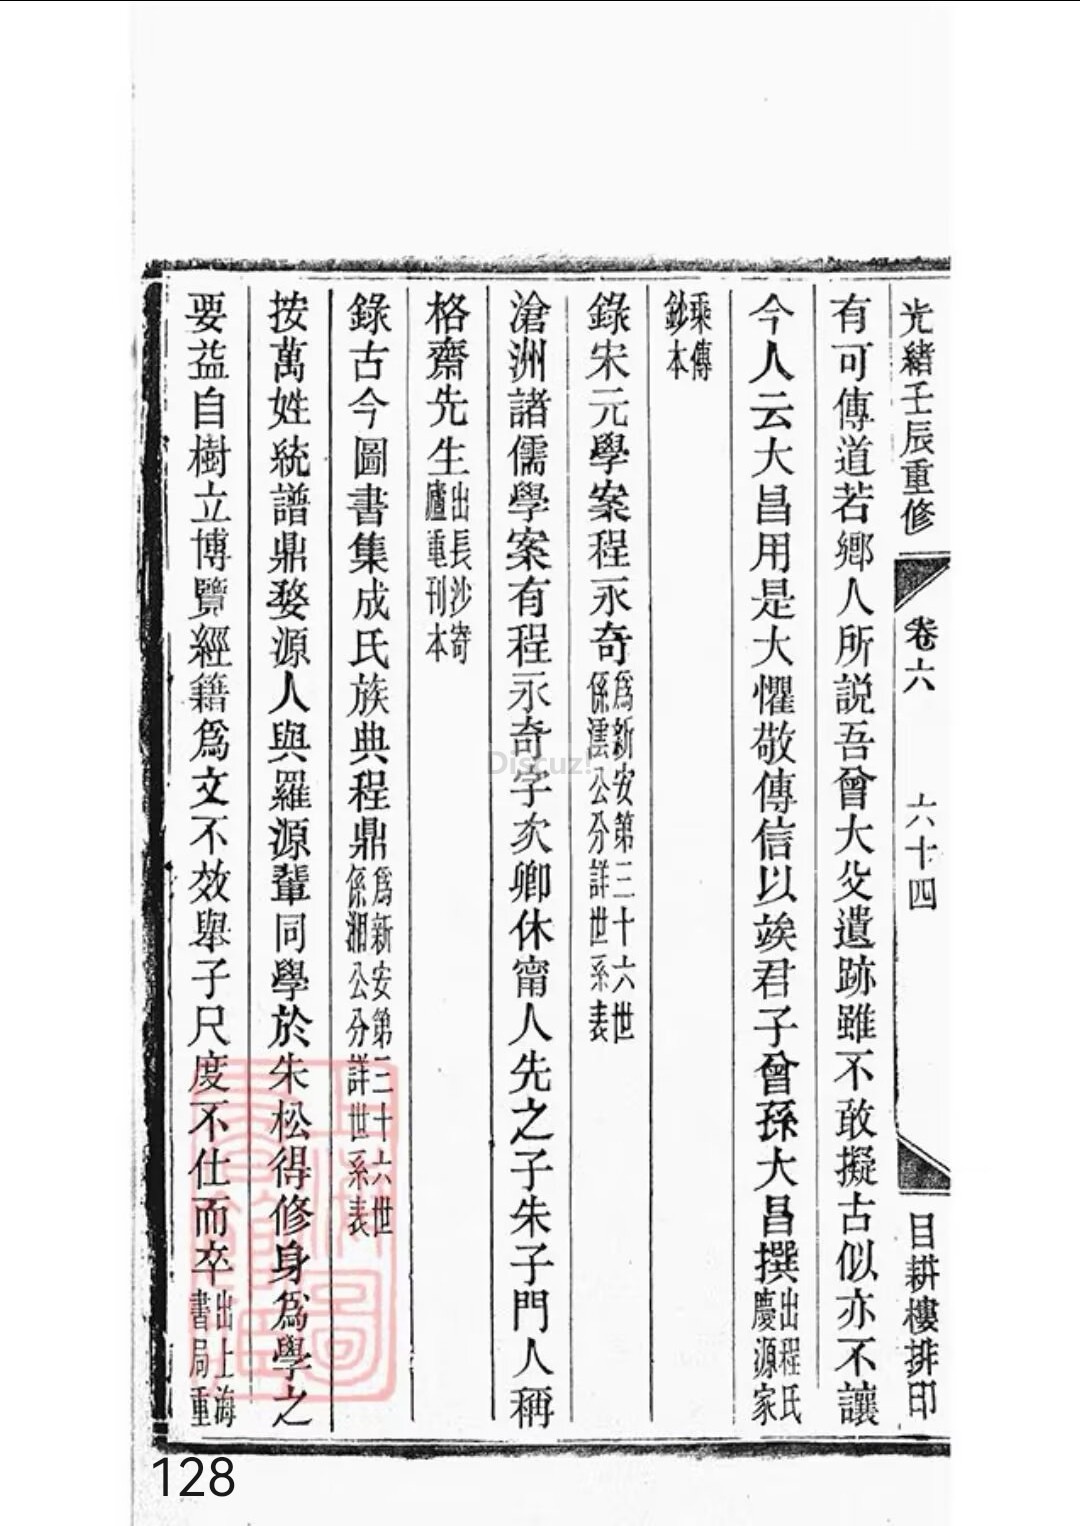 光緒壬辰重修 卷六 六十四 目耕樓排印
有可傳道若鄉人所説吾曾大父遺跡雖不敢擬古似亦不讓
今人云大昌用是大懼敬傳信以竢君子曾孫大昌撰出程氏慶源家
乘傳鈔本
錄宋元學案程永奇爲新安第三十六世係澐公分詳世系表
滄洲諸儒學案有程永奇字次卿休甯人先之子朱子門人稱
格齋先生出長沙寄廬重刊本
錄古今圖書集成氏族典程鼎爲新安第三十六世係湘公分詳世系表
按萬姓統譜鼎婺源人與羅源輩同學於朱松得修身爲學之
要益自樹立博覽經籍爲文不效舉子尺度不仕而卒出上海書局重
Discuz!
128